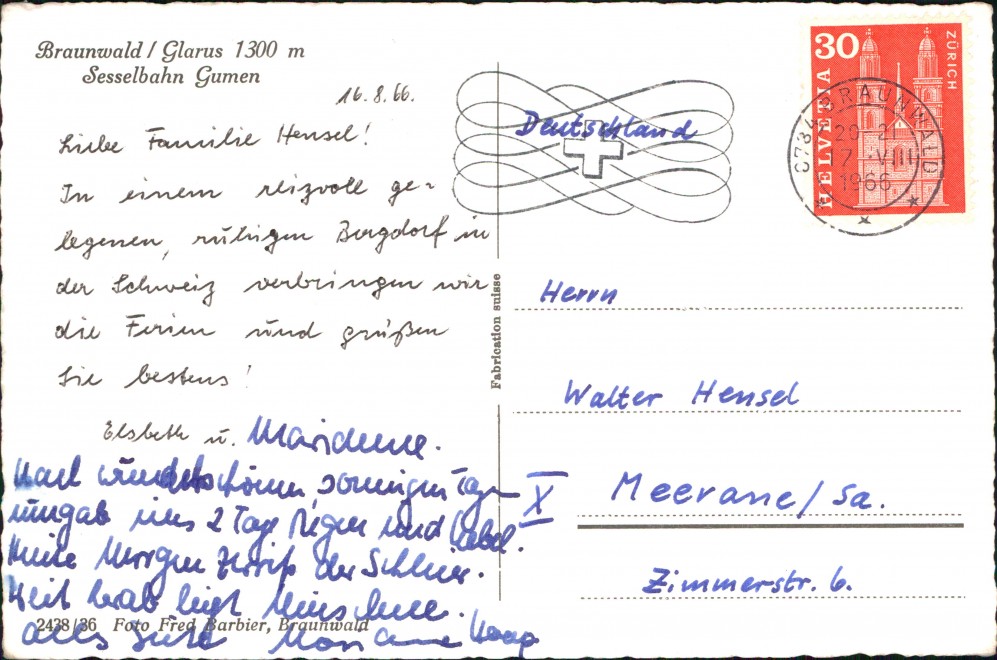 Braunwald / Glarus 1300 m
Sesselbahn Gumen
16.8.66.
Liebe Familie Hensel!
In einem reizvoll ge-
legenen, ruhigen Bergdorf in
der Schweiz verbringen wir
die Ferien und grüßen
Sie bestens!
Elsbeth u.
Nach wunderschönen sonnigen Tagen
umgab uns 2 Tage Regen und Nebel.
Heute Morgen zerriß der Schleier.
Weit herab liegt Neuschnee.
Alles Gute
2428/36 Foto Fred Barbier, Braunwald
Fabrication suisse
Deutschland
30
HELVETIA
ZÜRICH
8784 BRAUNWALD
20-21
17.VIII
1966
Herrn
Walter Hensel
X Meerane/Sa.
Zimmerstr. 6.